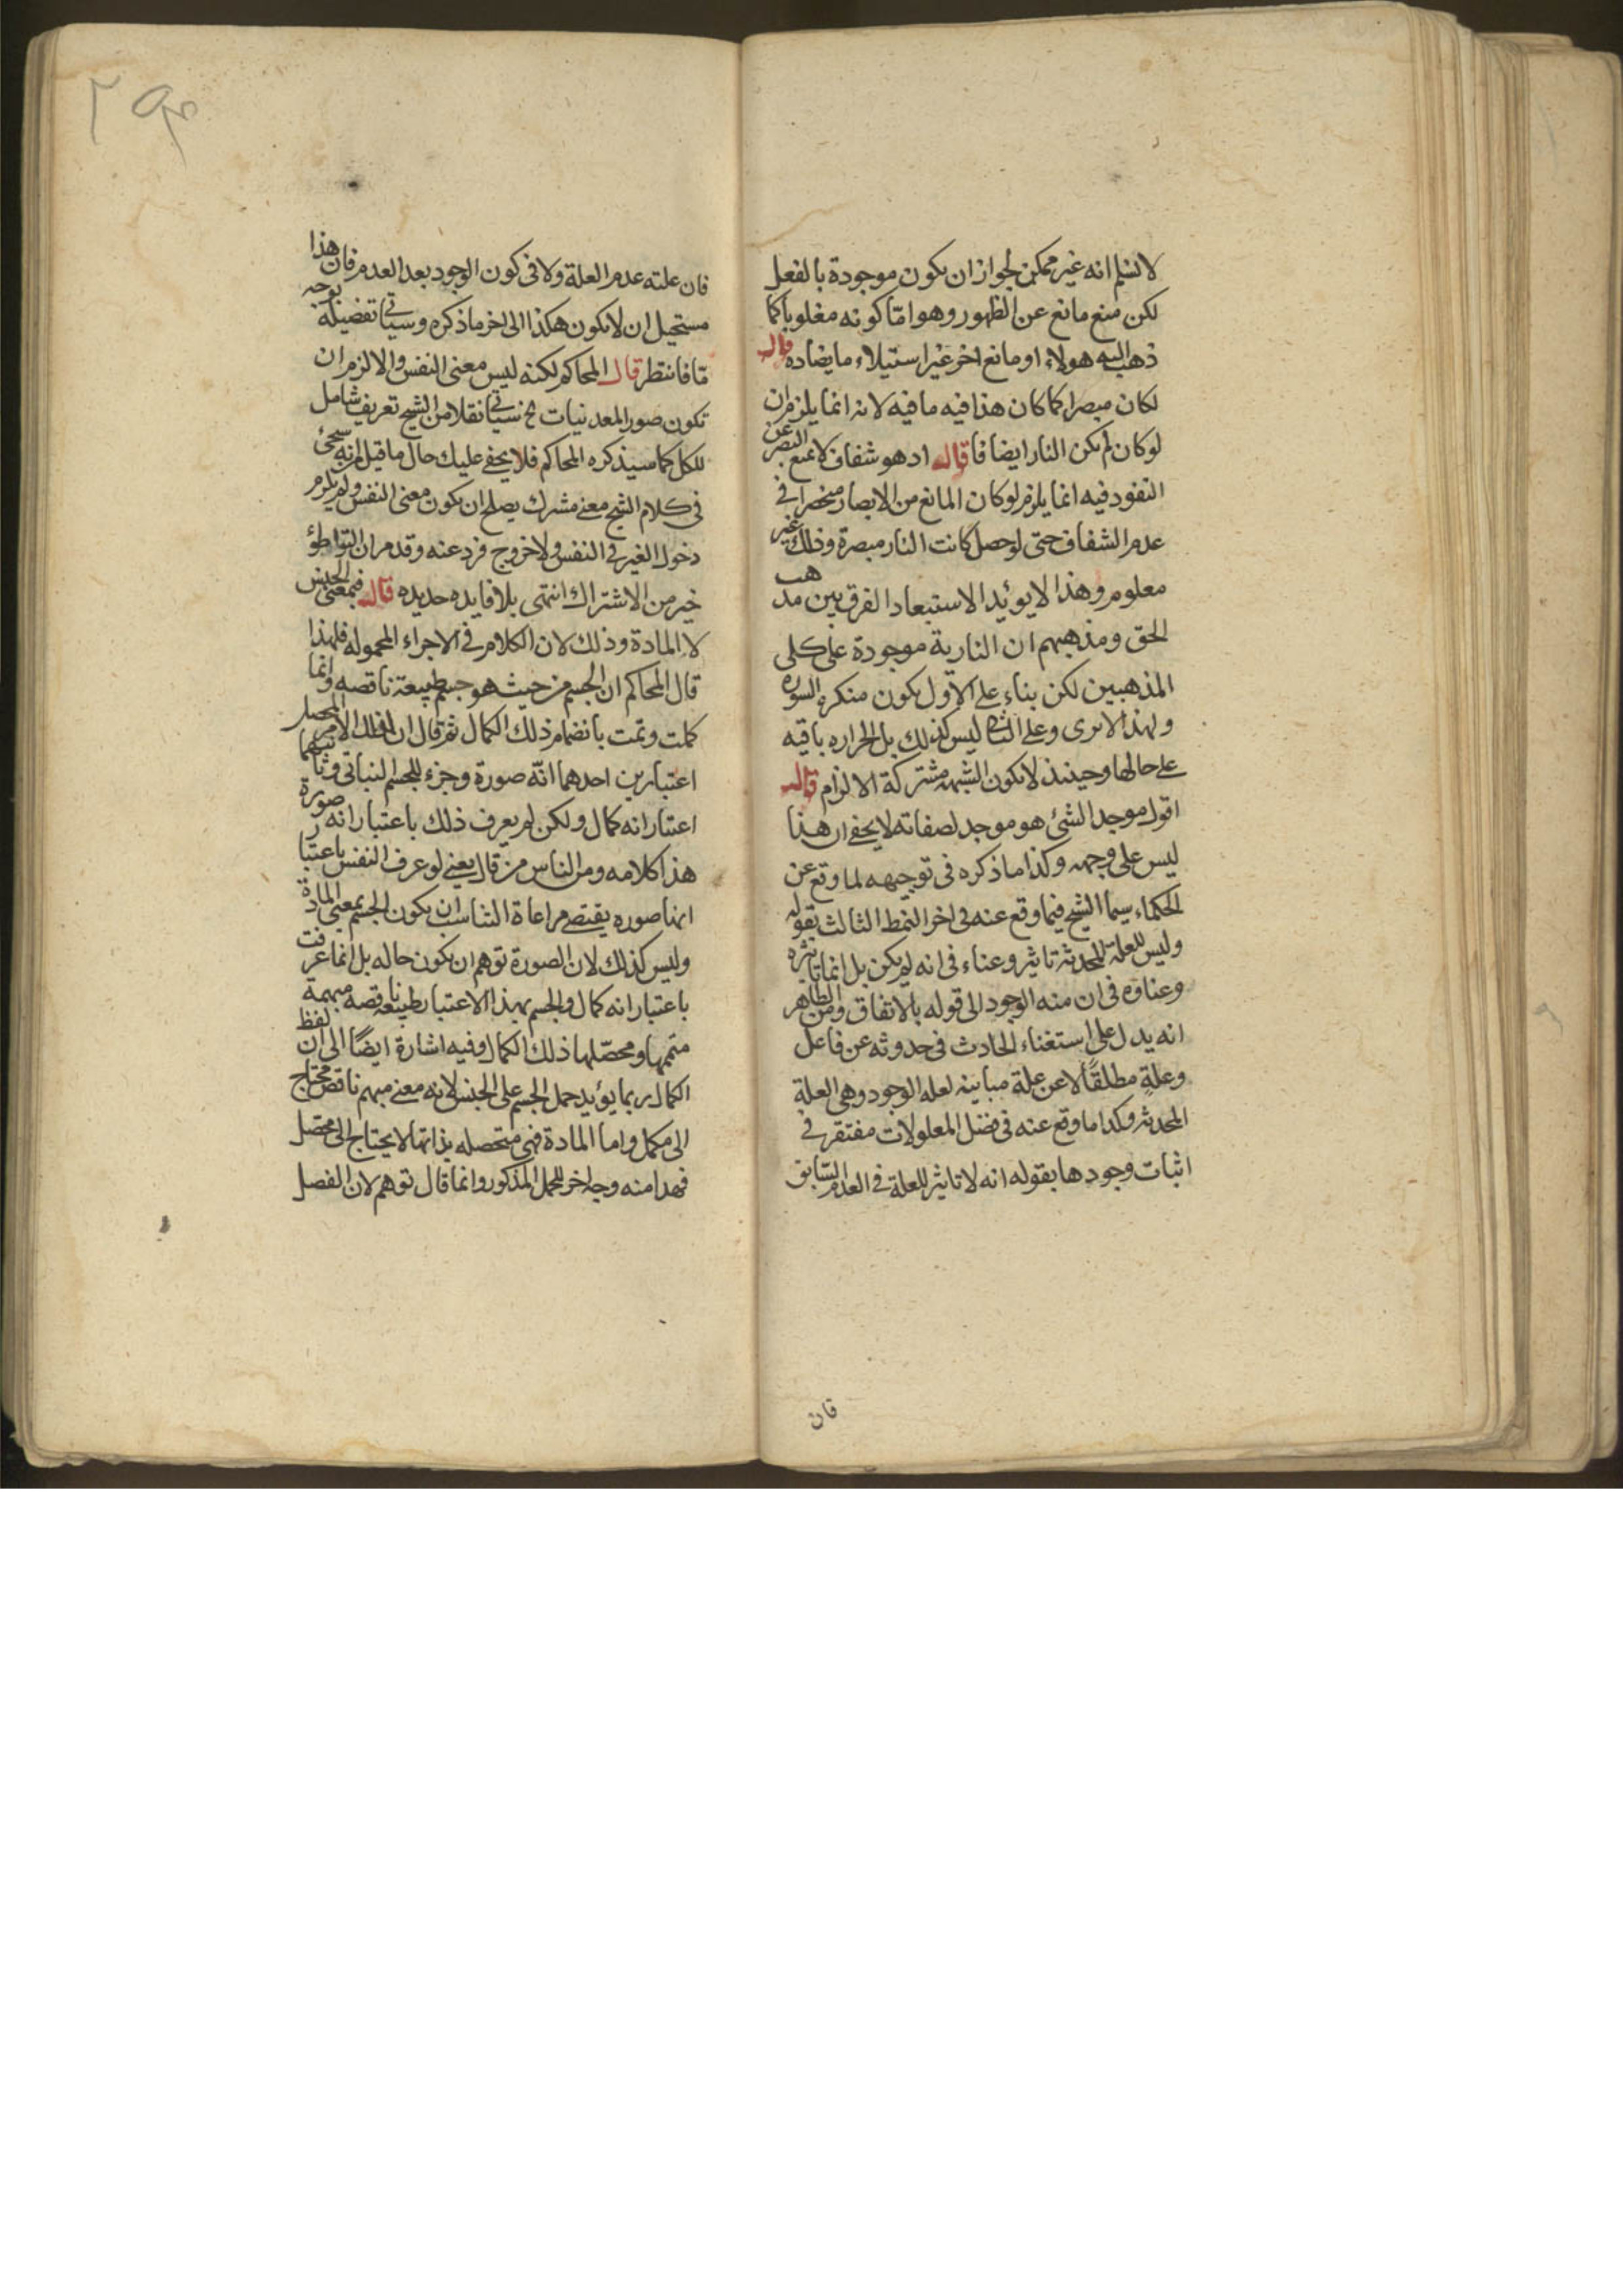 لا نسلم انه غير ممكن لجواز ان يكون موجودة بالفعل
لكن منع مانع عن الظهور وهو امّا كونه مغلوبا كما
ذهب اليه هولاء او مانع اخر غير استيلاء ما يضاده قال
لكان مبصرا كما كان هذا فيه ما فيه لانه انما يلزم ان
لوكان لم يكن النار ايضا قال اد هو شفاف لا يمنع البصر عن
النفود فيه انما يلزم لو كان المانع من الابصار منحصرا في
عدم الشفاف حتى لو حصل كانت النار مبصرة وذلك غير
معلوم وهذا لا يوئيد الاستبعاد الفرق بين مذهب
الحق ومذهبهم ان النارية موجودة على كلى
المذهبين لكن بناء على الاول يكون منكره السوره
ولهذا لا يرى وعلى الثانى ليس كذلك بل الحراره باقيه
على حالها وحينئذ لا يكون الشبهه مشتركة الالزام قال
اقول موجد الشئ هو موجد لصفاته لا يخفى ان هذا
ليس على وجهه وكذا ما ذكره فى توجيهه لما وقع عن
الحكماء سيما الشيخ فيما وقع عنه فى اخر النمط الثالث بقوله
وليس للعلة المحدثه تاثير وعناء فى انه لم يكن بل انما تاثيره
وعناؤه فى ان منه الوجود الى قوله بالاتفاق ومن الظاهر
انه يدل على استغناء الحادث فى حدوثه عن فاعل
وعلةٍ مطلقًا لا عن علة مباينه لعله الوجود وهى العلة
المحدثه وكدا ما وقع عنه فى فضل المعلولات مفتقر فى
اثبات وجودها بقوله انه لا تاثير للعلة فى العدم السّابق
فان
فان علته عدم العلة ولا فى كون الوجود بعد العدم فان هذا
مستحيل ان لا يكون هكذا الى اخر ما ذكره وسياتى تفضيله بوجه
مّا فانتظر قال المحاكم لكنه ليس معنى النفس والا لزم ان
تكون صور المعدنيات نخ سياتى نقلا من الشيخ تعريف شامل
للكل كما سيذكره المحاكم فلا يخفى عليك حال ما قيل انه سيجئ
فى كلام الشيخ معنى مشرك يصلح ان يكون معنى النفس ولم يلزم
دخول الغير فى النفس ولا خروج فرد عنه وقد مر ان التواطؤ
خير من الاشتراك انتهى بلا فايده حديده قال فبمعنى الجنس
لا المادة وذلك لان الكلام فى الاجراء المحموله فلهذا
قال المحاكم ان الجسم من حيث هو جسم طبيعة ناقصه وانما
كملت وتمت بانضمام ذلك الكمال ثم قال ان لذلك الامر المحصل
اعتبارين احدهما انّه صورة وجزء للجسم النباتى وثانيهما
اعتبار انه كمال ولكن لم يعرف ذلك باعتبار انه صورة
هذا كلامه ومن الناس من قال يعنى لو عرف النفس باعتبار
انها صوره يقتضى مراعاة التناسب ان يكون الجسم بمعنى المادة
وليس كذلك لان الصورة توهم ان يكون حاله بل انما عرفت
باعتبار انه كمال والجسم بهذا الاعتبار طبيعة ناقصه مبهمة
متممها ومحصّلها ذلك الكمال وفيه اشارة ايضًا الى ان لفظ
الكمال ربما يوئيد حمل الجسم على الجنس لانه معنى مبهم ناقص محتاج
الى مكمل واما المادة فهى متحصله بذاتها لا يحتاج الى محصل
فهدا منه وجه اخر للحمل المذكور وانما قال توهم لان الفصل